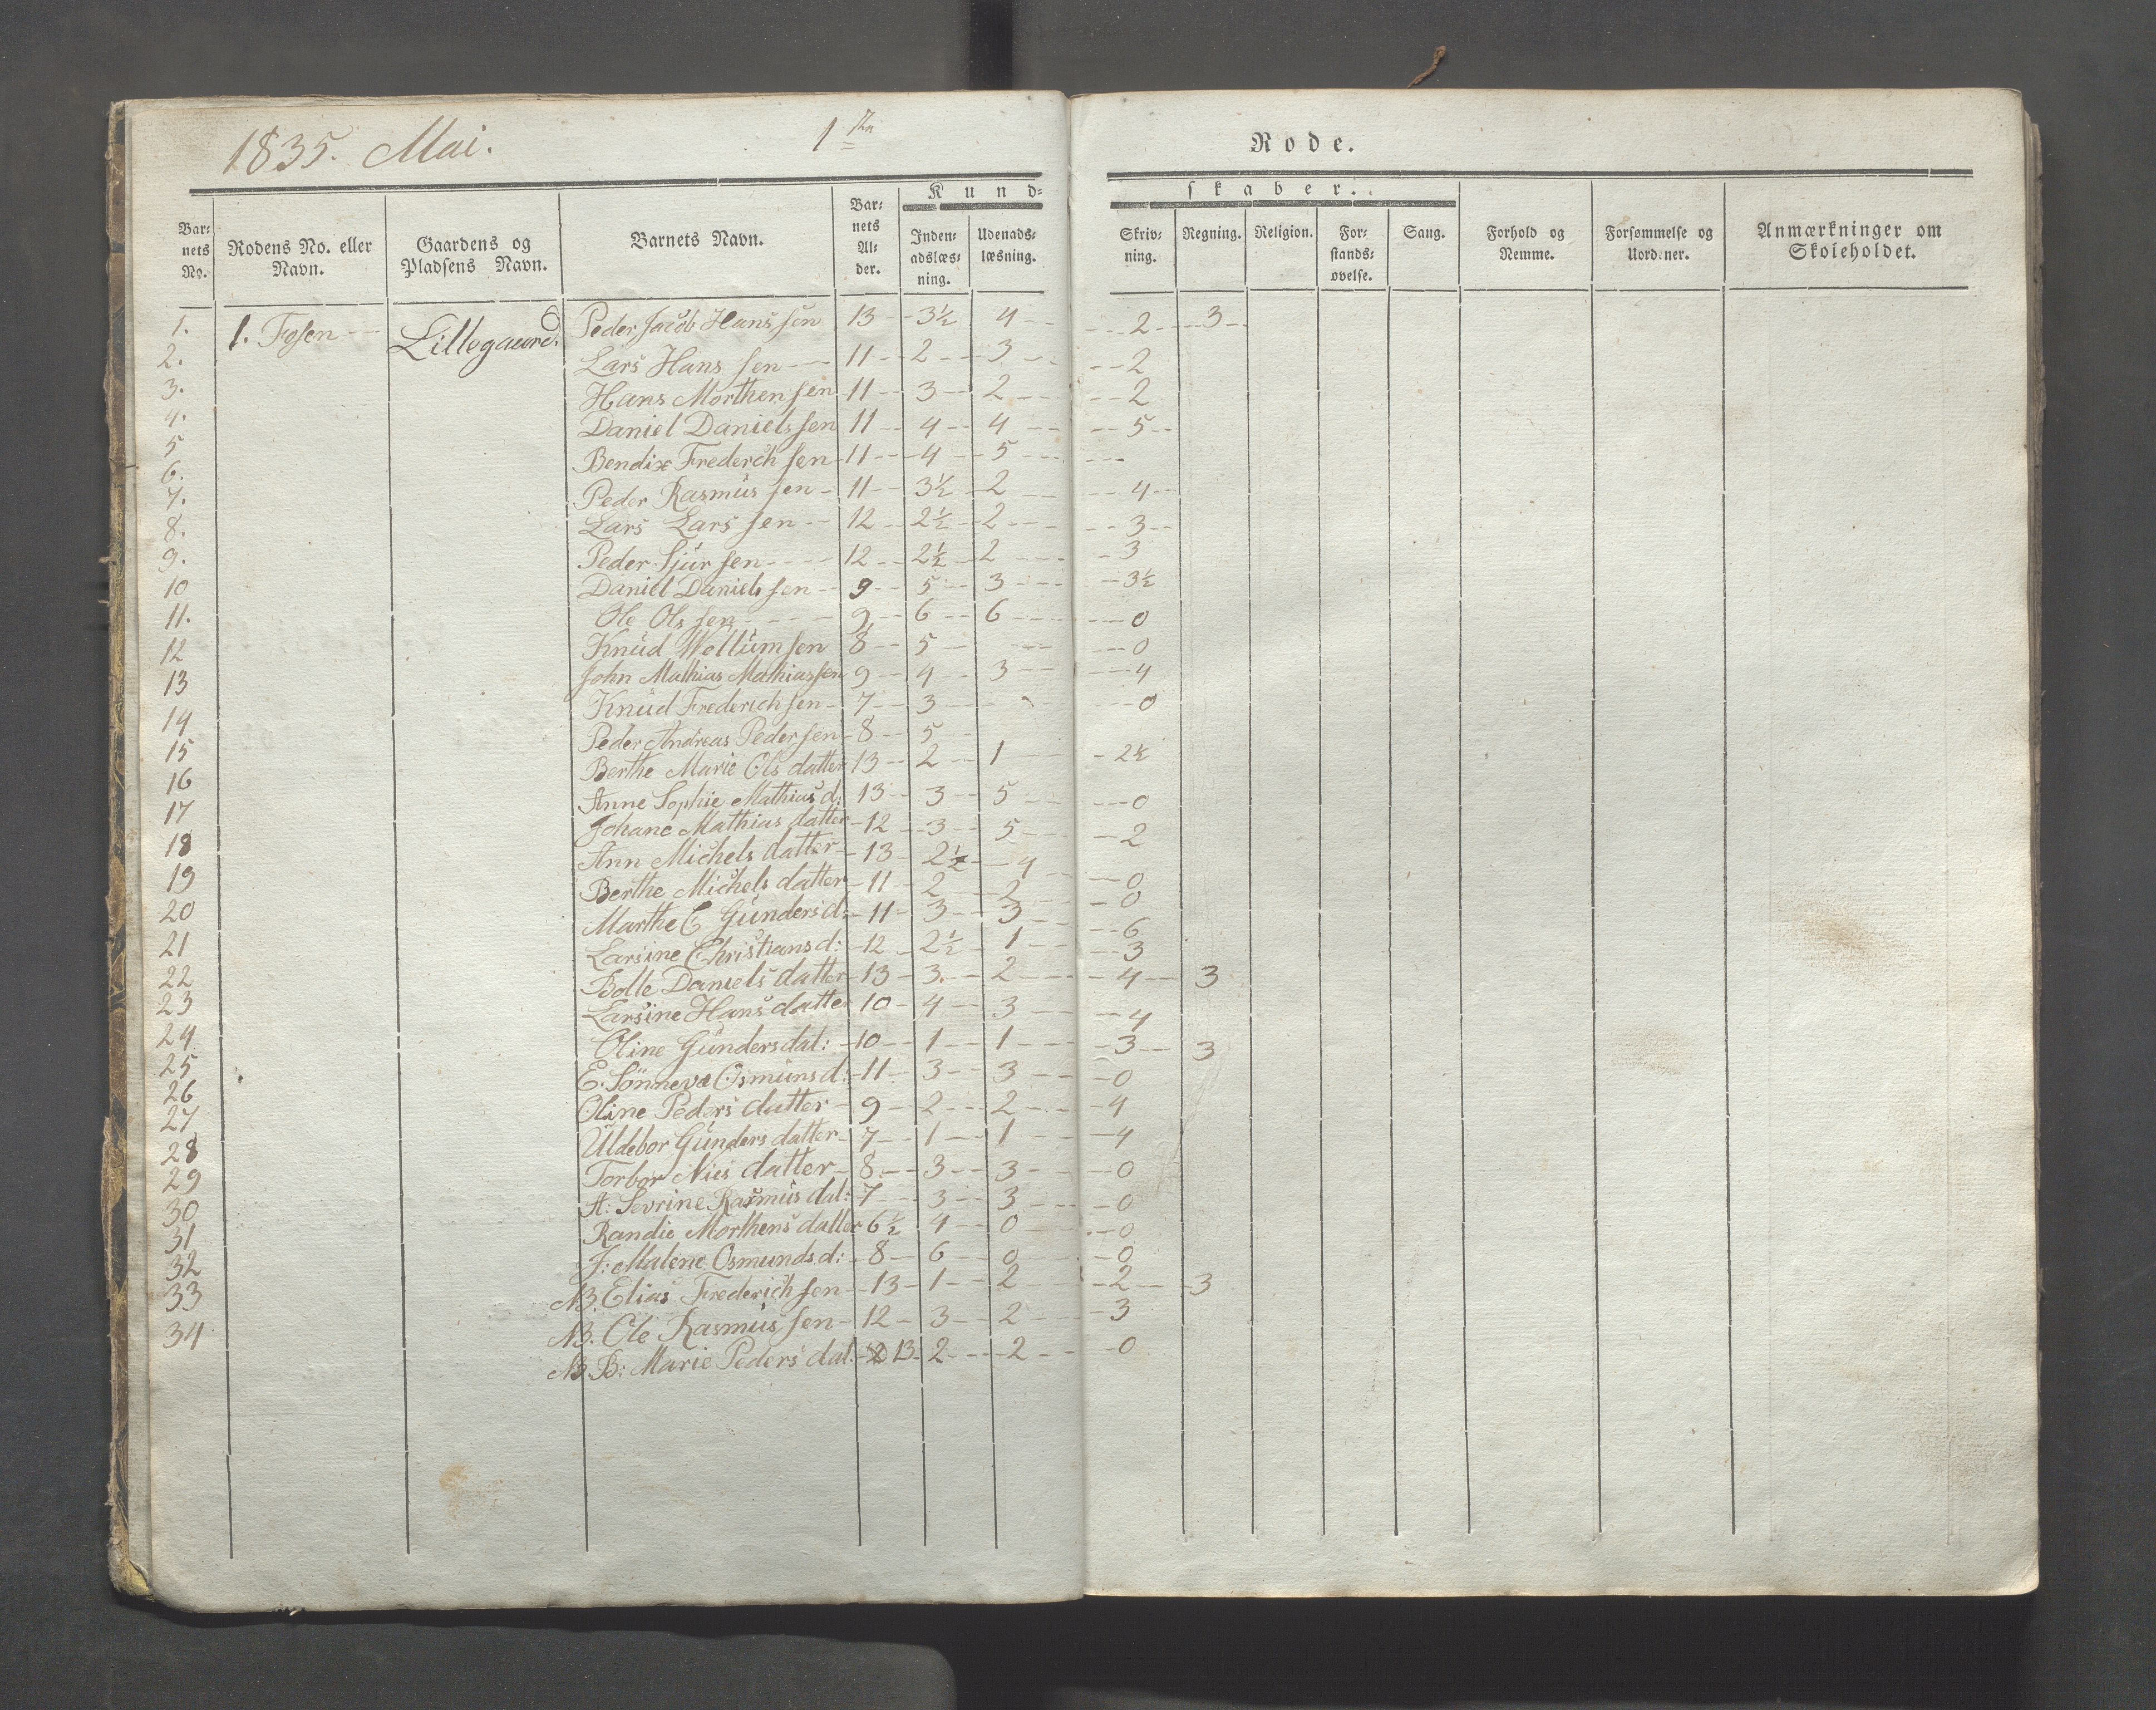 1835. Mai. 1ste Rode.
Kund- skaber.
Bar- nets No. Rodens No. eller Navn. Gaardens og Pladsens Navn. Barnets Navn. Bar- nets Al- der. Inden- adslæs- ning. Udenads- læsning. Skriv- ning. Regning. Religion. For- stands- øvelse. Sang. Forhold og Nemme. Forsømmelse og Uordener. Anmærkninger om Skoleholdet.
1. 1. Fosen Lillegaard. Peder Jacob Hanssen 13 3½ 4 2 3
2. Lars Hanssen 11 2 3 2
3. Hans Morthensen 11 3 2 2
4. Daniel Danielssen 11 4 4 5
5 Bendix Frederchsen 11 4 5
6. Peder Rasmussen 11 3½ 2 4
7. Lars Larssen 12 2½ 2 3
8. Peder Sjursen 12 2½ 2 3
9. Daniel Danielssen 9 5 3 3½
10 Ole Olssen 9 6 6 0
11. Knud Wollumsen 8 5 0
12 John Mathias Mathiassen 9 4 3 4
13 Knud Frederichsen 7 3 0
14 Peder Andreas Pedersen 8 5
15 Berthe Marie Ols datter 13 2 1 2½
16 Anne Sophie Mathias d: 13 3 5 0
17 Johane Mathias datter 12 3 5 2
18 Ann Michels datter 13 2½ 4 0
19 Berthe Michels datter 11 2 2 0
20 Marthe C Gunders d: 11 3 3 6
21 Larsine Christians d: 12 2½ 1 3
22 Bolle Daniels datter 13 3. 2 4 3
23 Larsine Hans datter 10 4 3 4
24 Oline Gunders dat: 10 1 1 3 3
25 E. Sønneva Osmuns d: 11 3 3 0
26 Oline Peders datter 9 2 2 4
27 Uldebor Gunders datter 7 1 1 4
28 Torbor Nies datter 8 3 3 0
29 A: Sevrine Rasmus dat: 7 3 3 0
30 Randie Morthens datter 6½ 4 0 0
31 J: Malene Osmunds d: 8 6 0 0
32 NB. Elias Frederichsen 13 1 2 2 3
33 NB. Ole Rasmussen 12 3 2 3
34 NB. B: Marie Peders dat. 13 2 2 0